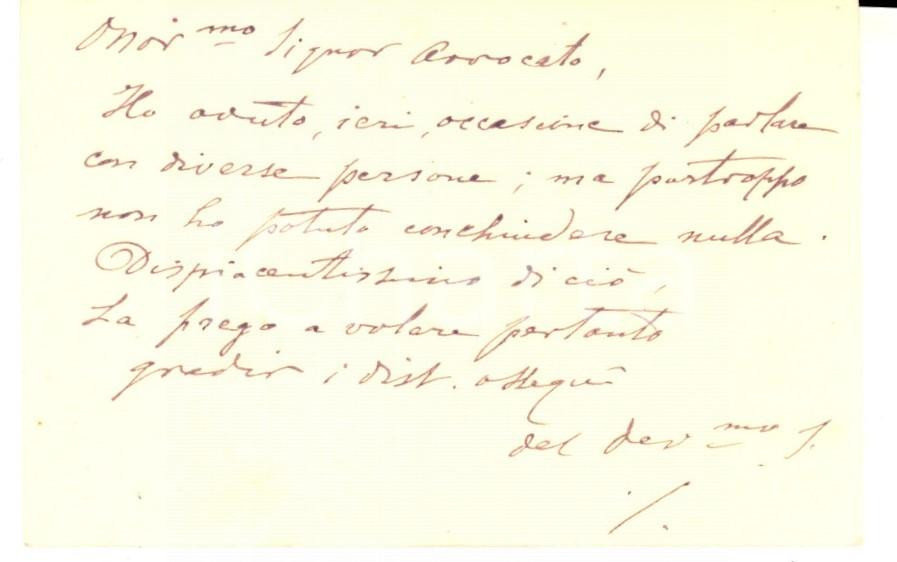 Onor mo Signor Avvocato,
Ho avuto, ieri, occasione di parlare
con diverse persone; ma purtroppo
non ho potuto conchiudere nulla.
Dispiacentissimo di ciò,
La prego a volere pertanto
gradir i dist. ossequi
del dev mo S.